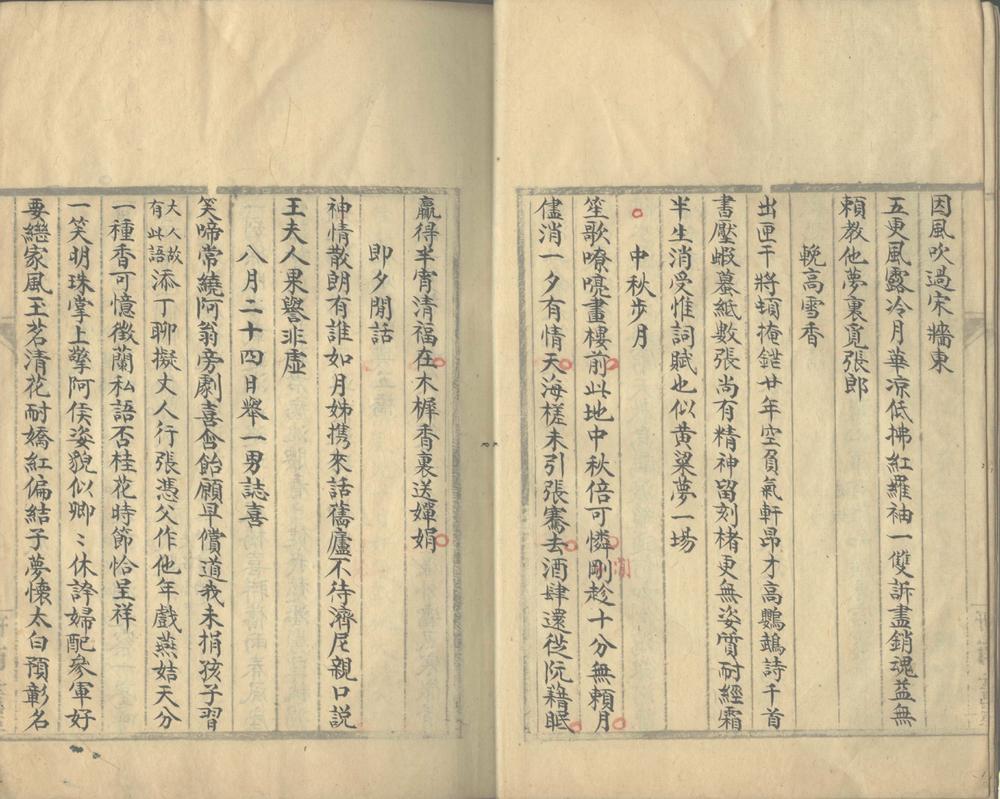 因風吹過宋牆東
五更風露冷月華凉低拂紅羅袖一雙訴盡銷魂益無
賴教他夢裏覓張郎
輓高雪香
出匣干將頓掩鋩廿年空負氣軒昂才高鸚鵡詩千首
書壓蝦蟇紙數張尚有精神留刻楮更無姿質耐經霜
半生消受惟詞賦也似黃粱夢一場
中秋步月
笙歌嘹喨畫樓前此地中秋倍可憐剛趁十分無賴月
儘消一夕有情天海槎未引張騫去酒肆還從阮籍眠
贏得半宵清福在木樨香裏送嬋娟
即夕閒話
神情散朗有誰如月姊携來話舊廬不待濟尼親口説
王夫人果譽非虛
八月二十四日舉一男誌喜
笑啼常繞阿翁旁劇喜含飴願早償道我未捐孩子習
大人故有此語添丁聊擬丈人行張憑父作他年戲燕姞天分
一種香可憶徵蘭私語否桂花時節恰呈祥
一笑明珠掌上擎阿侯姿貌似卿〻休誇婦配參軍好
要繼家風玉茗清花耐嬌紅偏結子夢懷太白預彰名